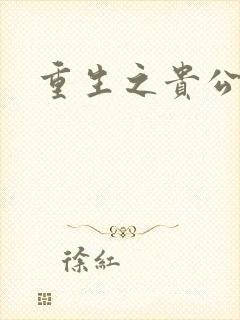 重生之貴公
徐紅